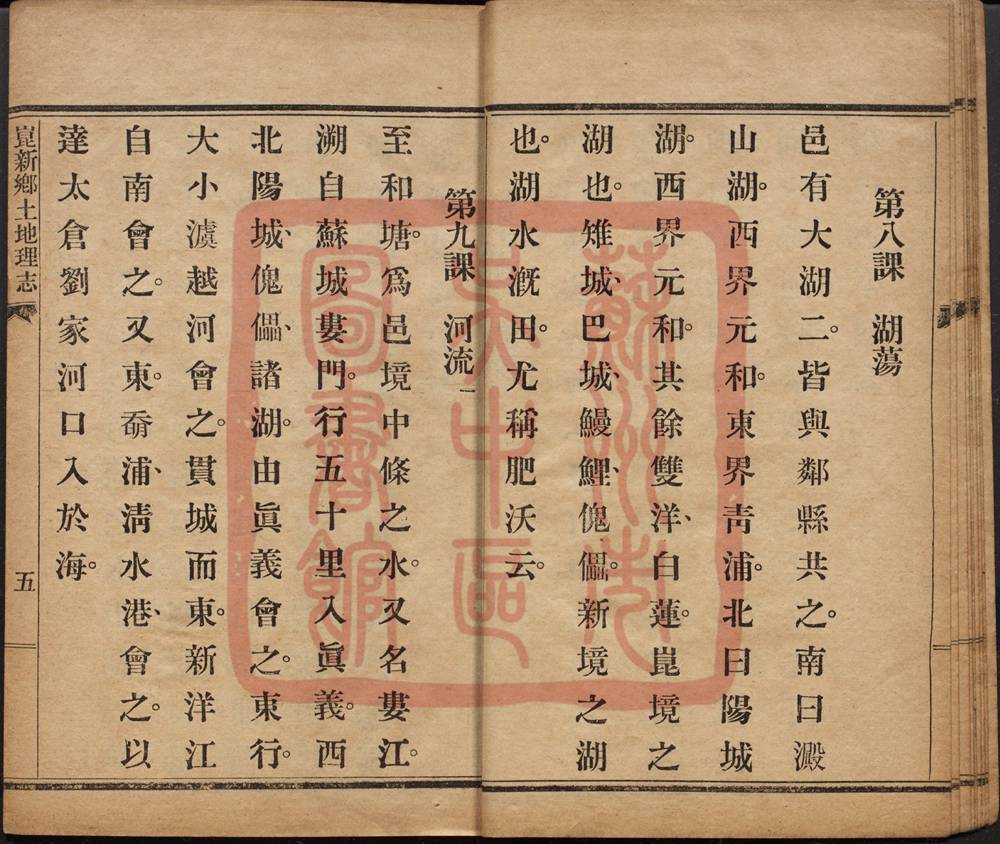 第八課　湖蕩
邑有大湖二。皆與鄰縣共之。南曰澱
山湖。西界元和。東界青浦。北曰陽城
湖。西界元和。其餘雙洋、白蓮。崑境之
湖也。雉城、巴城、鰻鯉、傀儡。新境之湖
也。湖水溉田。尤稱肥沃云。
第九課　河流一
至和塘。爲邑境中條之水。又名婁江。
溯自蘇城婁門。行五十里入眞義。西
北陽城、傀儡、諸湖。由眞義會之。東行。
大小澞越河會之。貫城而東。新洋江
自南會之。又東。奣浦、淸水港、會之。以
達太倉劉家河口入於海。
崑新鄉土地理志
五
蘇州市
吳中區
圖書館